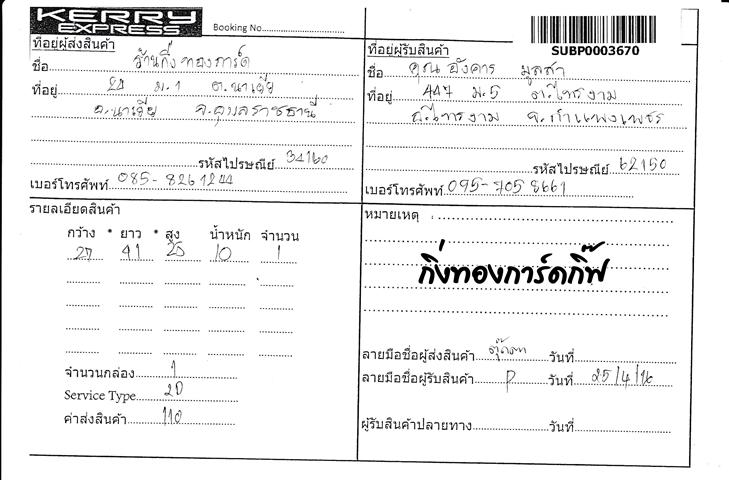 KERRY
EXPRESS
Booking No.
ที่อยู่ผู้ส่งสินค้า
ชื่อ ร้านกิ่งทองการ์ด
ที่อยู่ ม.1 ต.นาเยีย
อ.นาเยีย จ.อุบลราชธานี
รหัสไปรษณีย์ 34160
เบอร์โทรศัพท์ 085-8261244
SUBP0003670
ที่อยู่ผู้รับสินค้า
ชื่อ คุณ อังคาร มูลสา
ที่อยู่ 447 ม.5 ต.ไทรงาม
อ.ไทรงาม จ.กำแพงเพชร
รหัสไปรษณีย์ 62150
เบอร์โทรศัพท์ 095-705 8661
รายละเอียดสินค้า
กว้าง * ยาว * สูง น้ำหนัก จำนวน
27 41 25 10 1
จำนวนกล่อง 1
Service Type 2D
ค่าส่งสินค้า 110
หมายเหตุ :
กิ่งทองการ์ดกิ๊ฟ
ลายมือชื่อผู้ส่งสินค้า วันที่
ลายมือชื่อผู้รับสินค้า P วันที่ 25/4/16
ผู้รับสินค้าปลายทาง วันที่